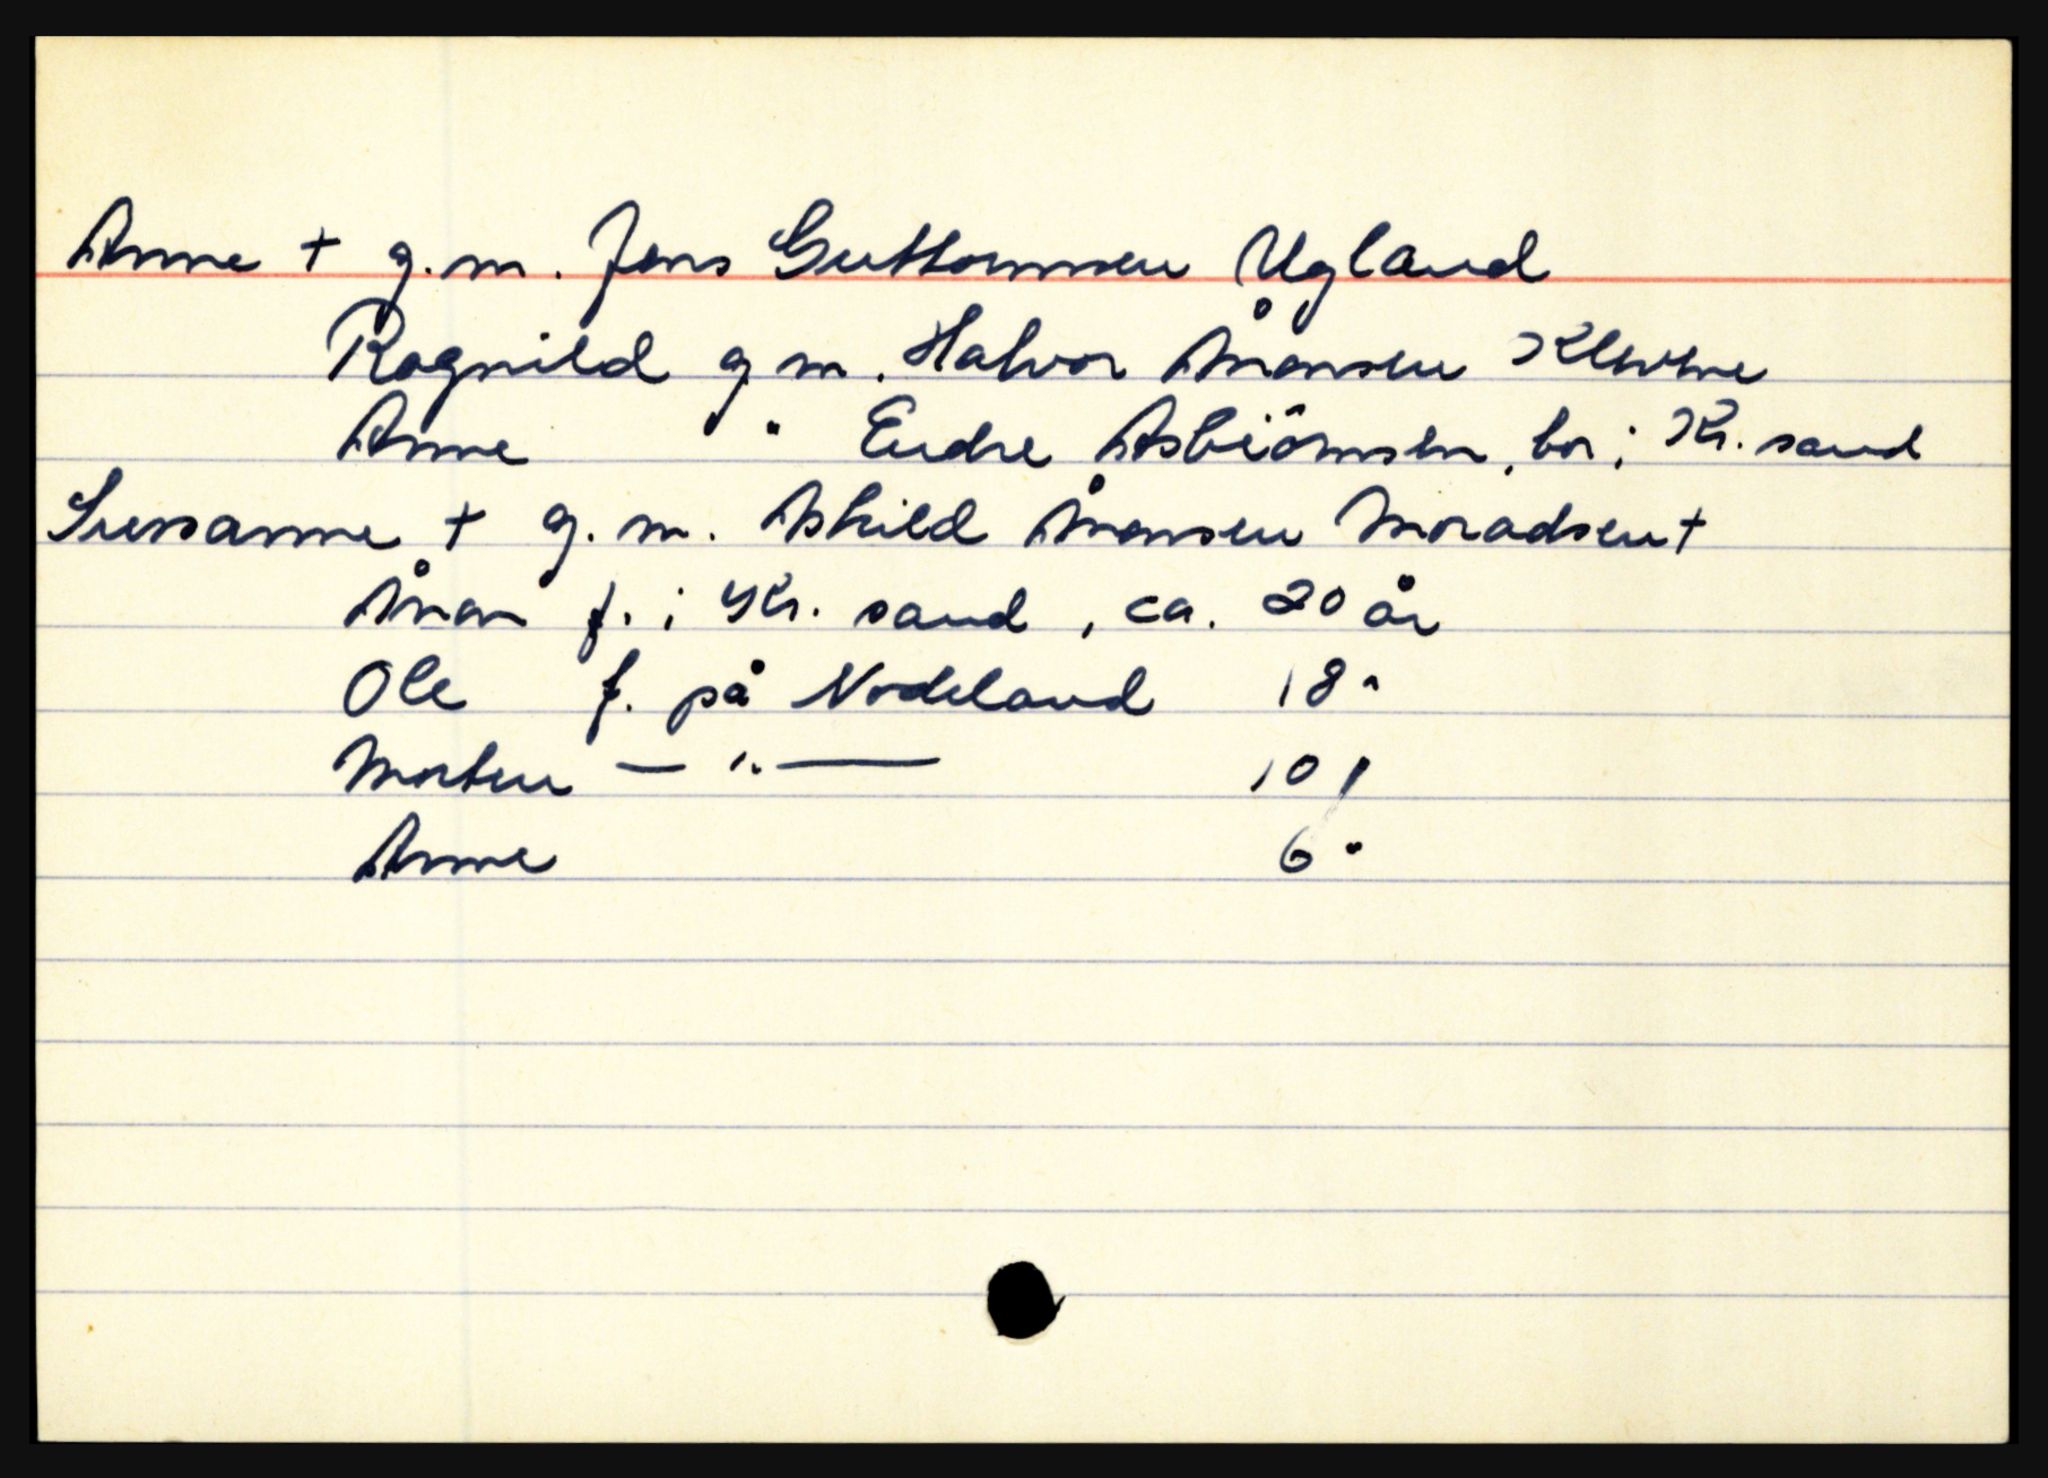 Anne + g.m. Jens Guttormsen Ugland
Ragnild g m. Halvor Ånonsen Kleve
Anne " Endre Asbiörnsen, bor i Kr. sand
Sussanne + g. m. Askild Ånonsen Moradsen +
Ånon f. i Kr. sand, ca. 20 år
Ole f. på Nodeland 18 "
Morten — " — 10 "
Anne 6 "